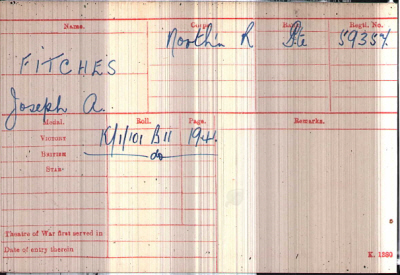 Name. Corps. Rank. Regtl. No.
North'n R Pte 59357
FITCHES
Joseph A.
Medal. Roll. Page. Remarks.
Victory K/1/101 B11 194.
British do
Star
Theatre of War first served in
Date of entry therein
K. 1380